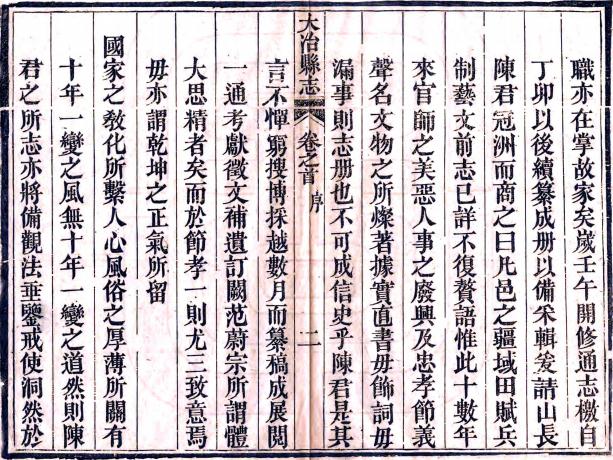 職亦在掌故家矣歲壬午開修通志檄自
丁卯以後續纂成册以備采輯爰請山長
陳君冠洲而商之曰凡邑之疆域田賦兵
制藝文前志已詳不復贅語惟此十數年
來官師之美惡人事之廢興及忠孝節義
聲名文物之所燦著據實直書毋飾詞毋
漏事則志册也不可成信史乎陳君是其
大冶縣志 卷之首 序 二
言不憚窮搜博採越數月而纂稿成展閲
一通考獻徵文補遺訂闕范蔚宗所謂體
大思精者矣而於節孝一則尤三致意焉
毋亦謂乾坤之正氣所留
國家之敎化所繫人心風俗之厚薄所關有
十年一變之風無十年一變之道然則陳
君之所志亦將備觀法垂鑒戒使洞然於